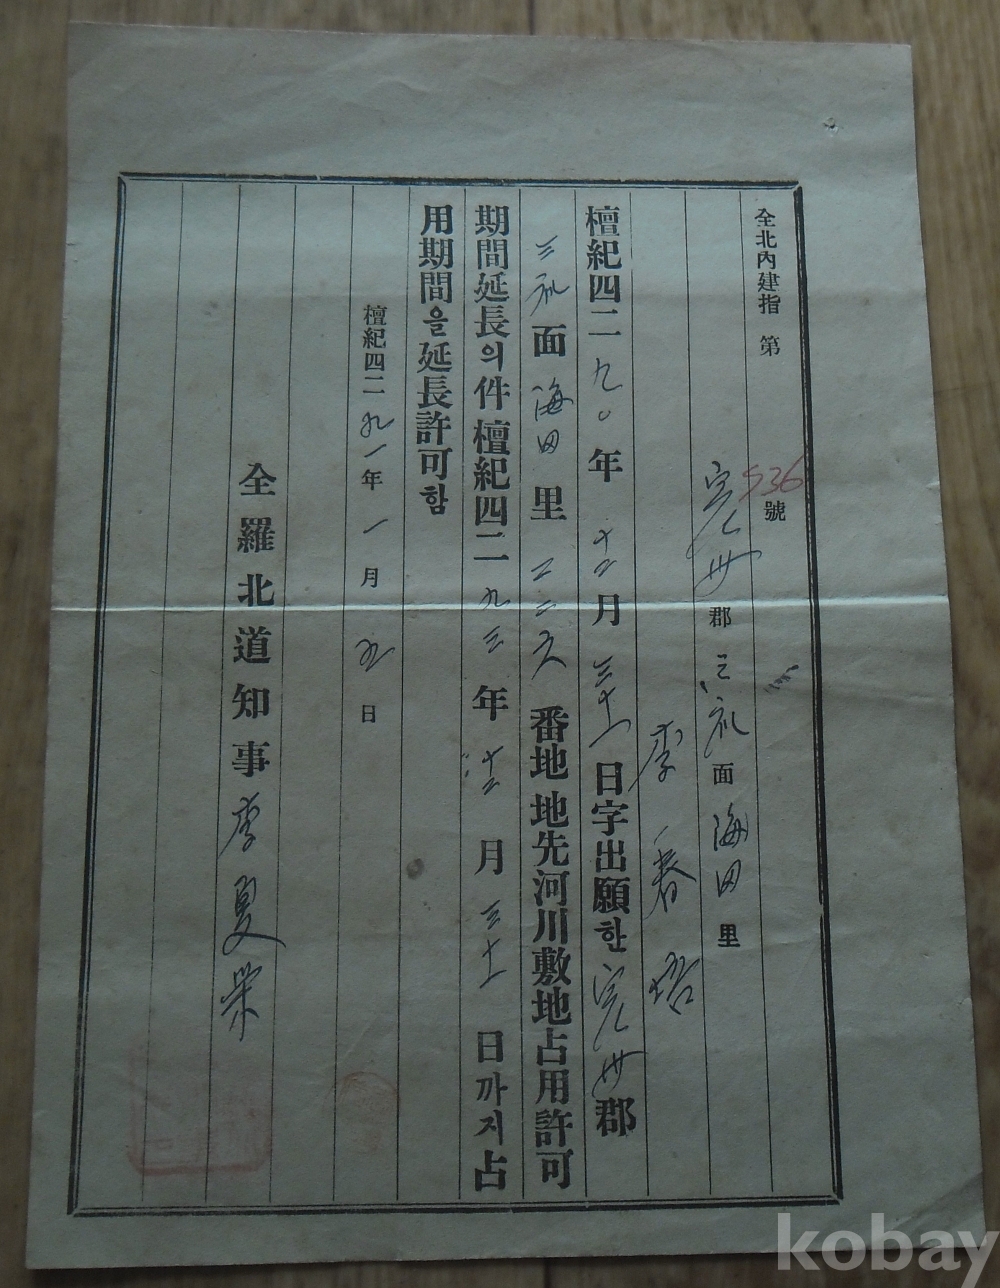 全北內建指 第936號
完州郡 三礼面 海田里
李春
檀紀四二九〇年 十二月 三十一日字出願한 完州郡
三礼面 海田里 二二六番地 地先河川敷地占用許可
期間延長의件檀紀四二九三年 十二月 三十一日까지占
用期間을延長許可함
檀紀四二九一年 一月 九日
全羅北道知事 李夏榮
kobay